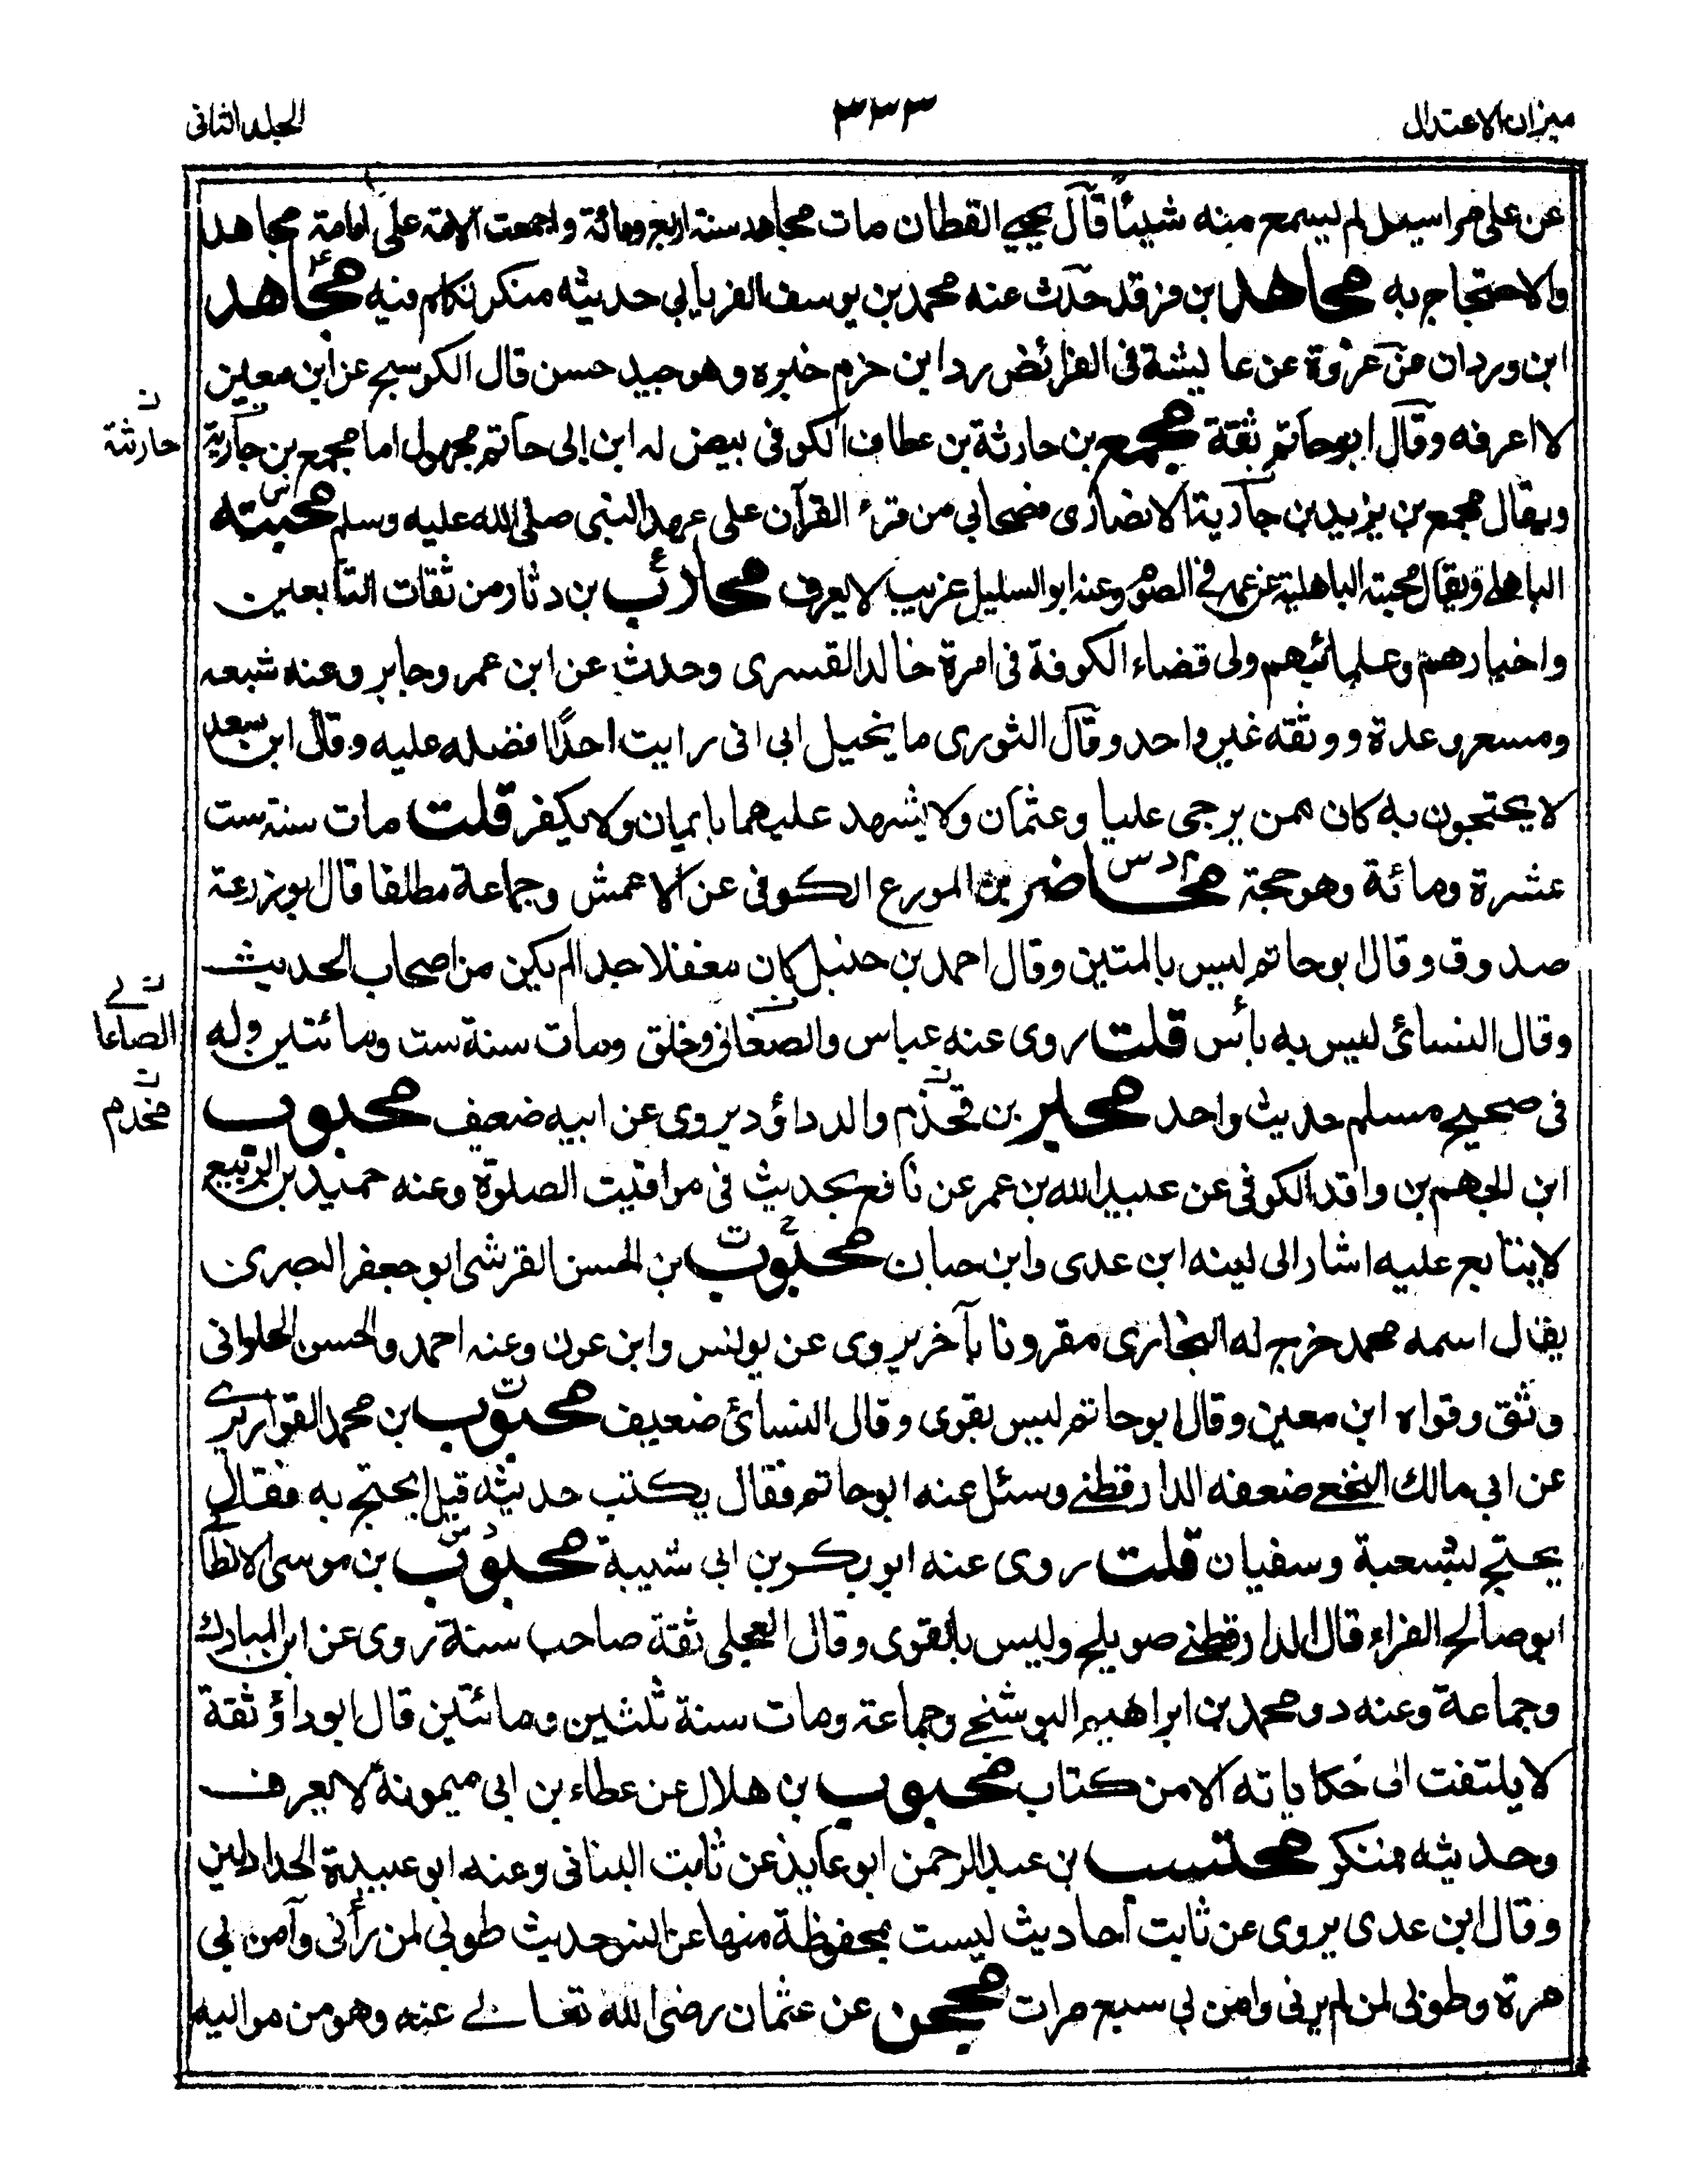 ميزان الاعتدال
٣٣٣
الجلد الثانى
عن على مراسيل لم يسمع منه شيئًا قال يحيى القطان مات مجاهد سنة اربع ومائة واجمعت الامة على امامة مجاهد
والاحتجاج به مجاهد بن فرقد حدث عنه محمد بن يوسف الفريابي حديثه منكر تكلم فيه مجاهد
ابن وردان عن عروة عن عايشة فى الفرائض رد ابن حزم خبره وهو جيد حسن قال الكوسج عن ابن معين
لا اعرفه وقال ابو حاتم ثقة مجمع بن حارثة بن عطاف الكوفى بيض له ابن ابى حاتم مجهول اما مجمع بن جارية
حارثة
ويقال مجمع بن يزيد بن جارية الانصارى فصحابي من قرء القرآن على عهد النبى صلى الله عليه وسلم محبته
الباهلى ويقال محبته الباهلية عن عمه فى الصوم وعنه ابو السليل غريب لا يعرف محارب بن دثار من ثقات التابعين
واخيارهم وعلمائهم ولى قضاء الكوفة فى امرة خالد القسرى وحدث عن ابن عمر وجابر وعنه شبعه
ومسعر وعدة ووثقه غير واحد وقال الثورى ما يخيل الى انى رايت احدًا افضله عليه وقال ابن سعد
لا يحتجون به كان ممن يرجى عليا وعثمان ولا يشهد عليهما بايمان ولا بكفر قلت مات سنة ست
عشرة ومائة وهو حجة محاضر بن المورع الكوفى عن الاعمش وجماعة مطلقا قال ابو زرعة
صدوق وقال ابو حاتم ليس بالمتين وقال احمد بن حنبل كان مغفلا جدا لم يكن من اصحاب الحديث
وقال النسائى ليس به بأس قلت روى عنه عباس والصغانى وخلق ومات سنة ست ومائتين وله
الصاغا
فى صحيح مسلم حديث واحد محبر بن قحذم والد داؤد يروى عن ابيه ضعيف محبوب
مخدم
ابن الجهم بن واقد الكوفى عن عبيد الله بن عمر عن نافع بحديث فى مواقيت الصلوة وعنه حميد بن الربيع
لا يتابع عليه اشار الى لينه ابن عدى وابن حبان محبوب بن الحسن القرشى ابو جعفر البصرى
يقال اسمه محمد خرج له البخارى مقرونا بآخر يروى عن يونس وابن عون وعنه احمد والحسن الحلوانى
وثق وقواه ابن معين وقال ابو حاتم ليس بقوى وقال النسائى ضعيف محبوب بن محمد القواريرى
عن ابى مالك النخعى ضعفه الدارقطنى وسئل عنه ابو حاتم فقال يكتب حديثه قيل ايحتج به فقال
يحتج بشعبة وسفيان قلت روى عنه ابو بكر بن ابى شيبة محبوب بن موسى الانطا
ابو صالح الفراء قال الدارقطنى صويلح وليس بالقوى وقال العجلى ثقة صاحب سنة روى عن ابن المبارك
وجماعة وعنه د ومحمد بن ابراهيم البوشنجى وجماعة ومات سنة ثلثين ومائتين قال ابو داؤ ثقة
لا يلتفت الى حكاياته الا من كتاب محبوب بن هلال عن عطاء بن ابى ميمونة لا يعرف
وحديثه منكر محتسب بن عبد الرحمن ابو عايذ عن ثابت البنانى وعنه ابو عبيدة الحداد لين
وقال ابن عدى يروى عن ثابت احاديث ليست بمحفوظة منها عن انس حديث طوبى لمن رأنى وآمن بى
مرة وطوبى لمن لم يرنى وامن بى سبع مرات محجن عن عثمان رضى الله تعالى عنه وهو من مواليه